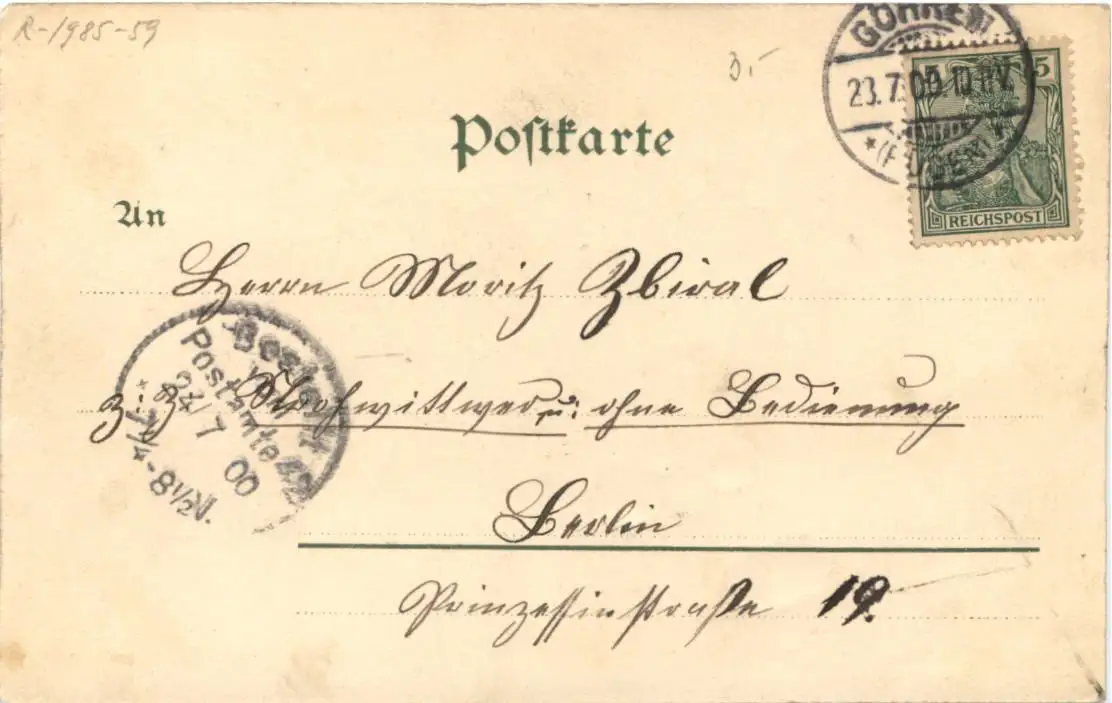 R-1985-59
3.-
GÖHREN
23.7.00.10-11V.
*(RÜGEN)
5 5
REICHSPOST
Postkarte
An
Herrn Moritz Zbiral
z. Z. Strohwittwer u: ohne Bedienung
Berlin
Prinzessinstraße 19.
Bestellt
v.
Postamte 42
24/7 00
*7¼-8½N.*